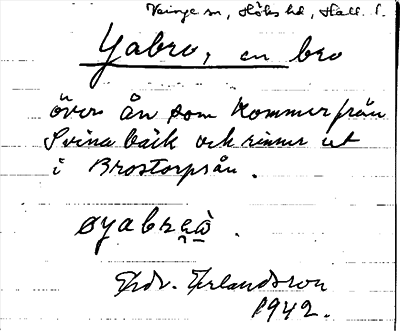 Veinge sn, Höks hd, Hall. l.
Yabro, en bro
över ån som kommer från
Svinabäck och rinner ut
i Brostorpsån.
øyabreà.
Edv. Erlandsson
1942.